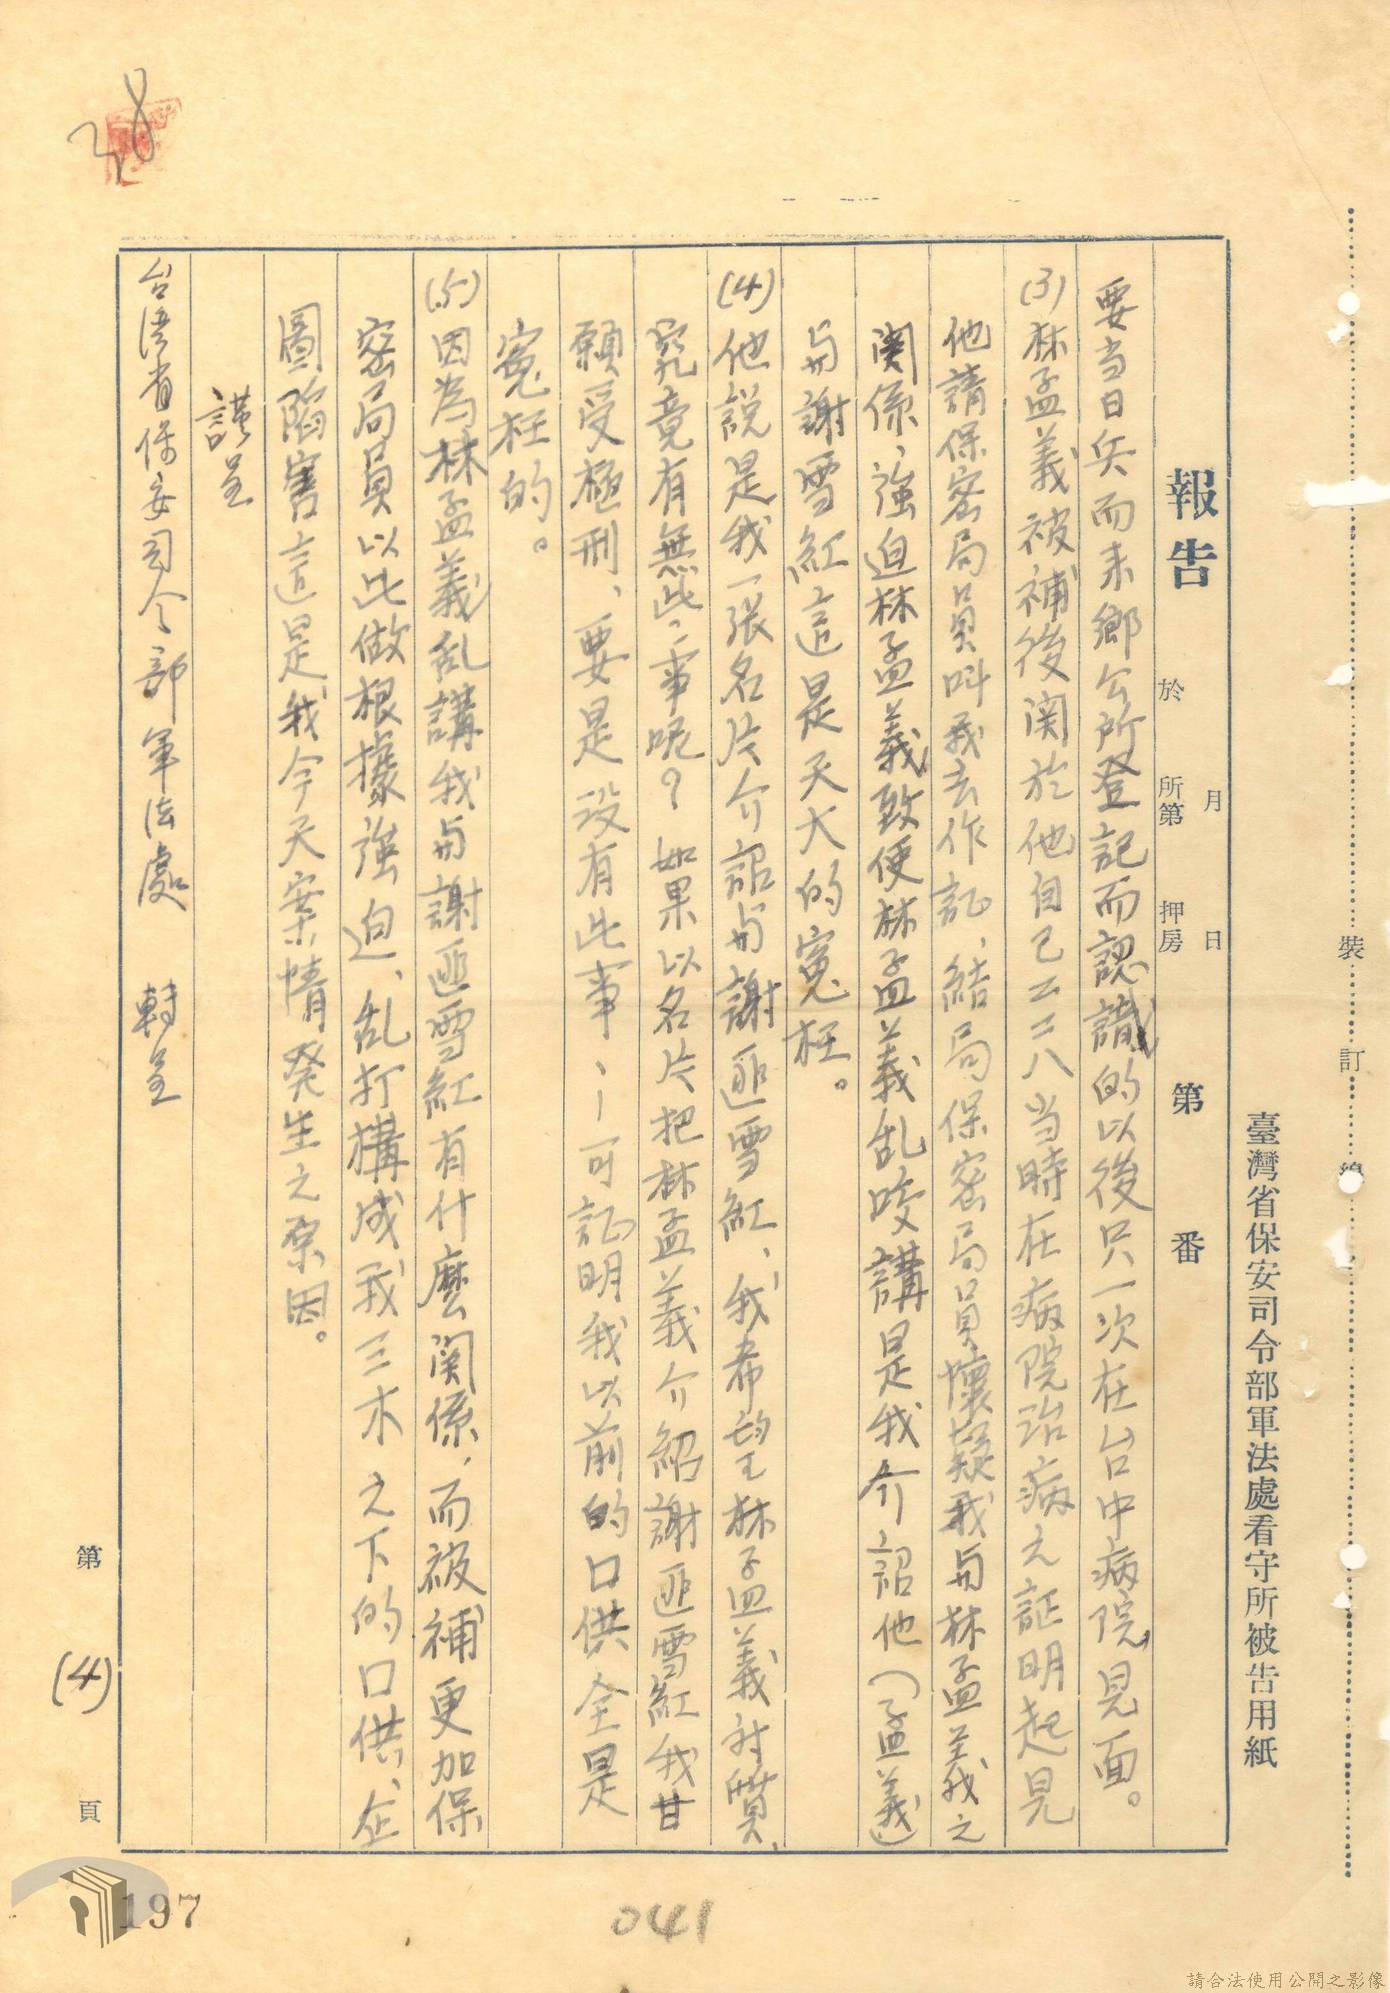 臺灣省保安司令部軍法處看守所被告用紙
報告　第　番
月　日
於　所第　押房
要当日兵而来鄉公所登記而認識的以後只一次在台中病院見面。
(3)林孟義被補後関於他自己二二八当時在病院治病之証明起見
他請保密局員叫我去作証、結局保密局員懷疑我与林孟義之
関係、強迫林孟義致使林孟義乱咬講是我介詔他(孟義)
与謝雪紅這是天大的寃枉。
(4)他説是我一張名片介詔与謝匪雪紅、我希望林孟義対質、
究竟有無此事呢？如果以名片把林孟義介紹謝匪雪紅我甘
願受極刑、要是没有此事、可証明我以前的口供全是
寃枉的。
(5)因為林孟義乱講我与謝匪雪紅有什麼関係、而被補更加保
密局員以此做根據強迫、乱打構成我三木之下的口供、企
圖陷害這是我今天案情発生之原因。
謹呈
台湾省保安司令部軍法處　轉呈
第(4)頁
38
197
041
裝
訂
線
請合法使用公開之影像